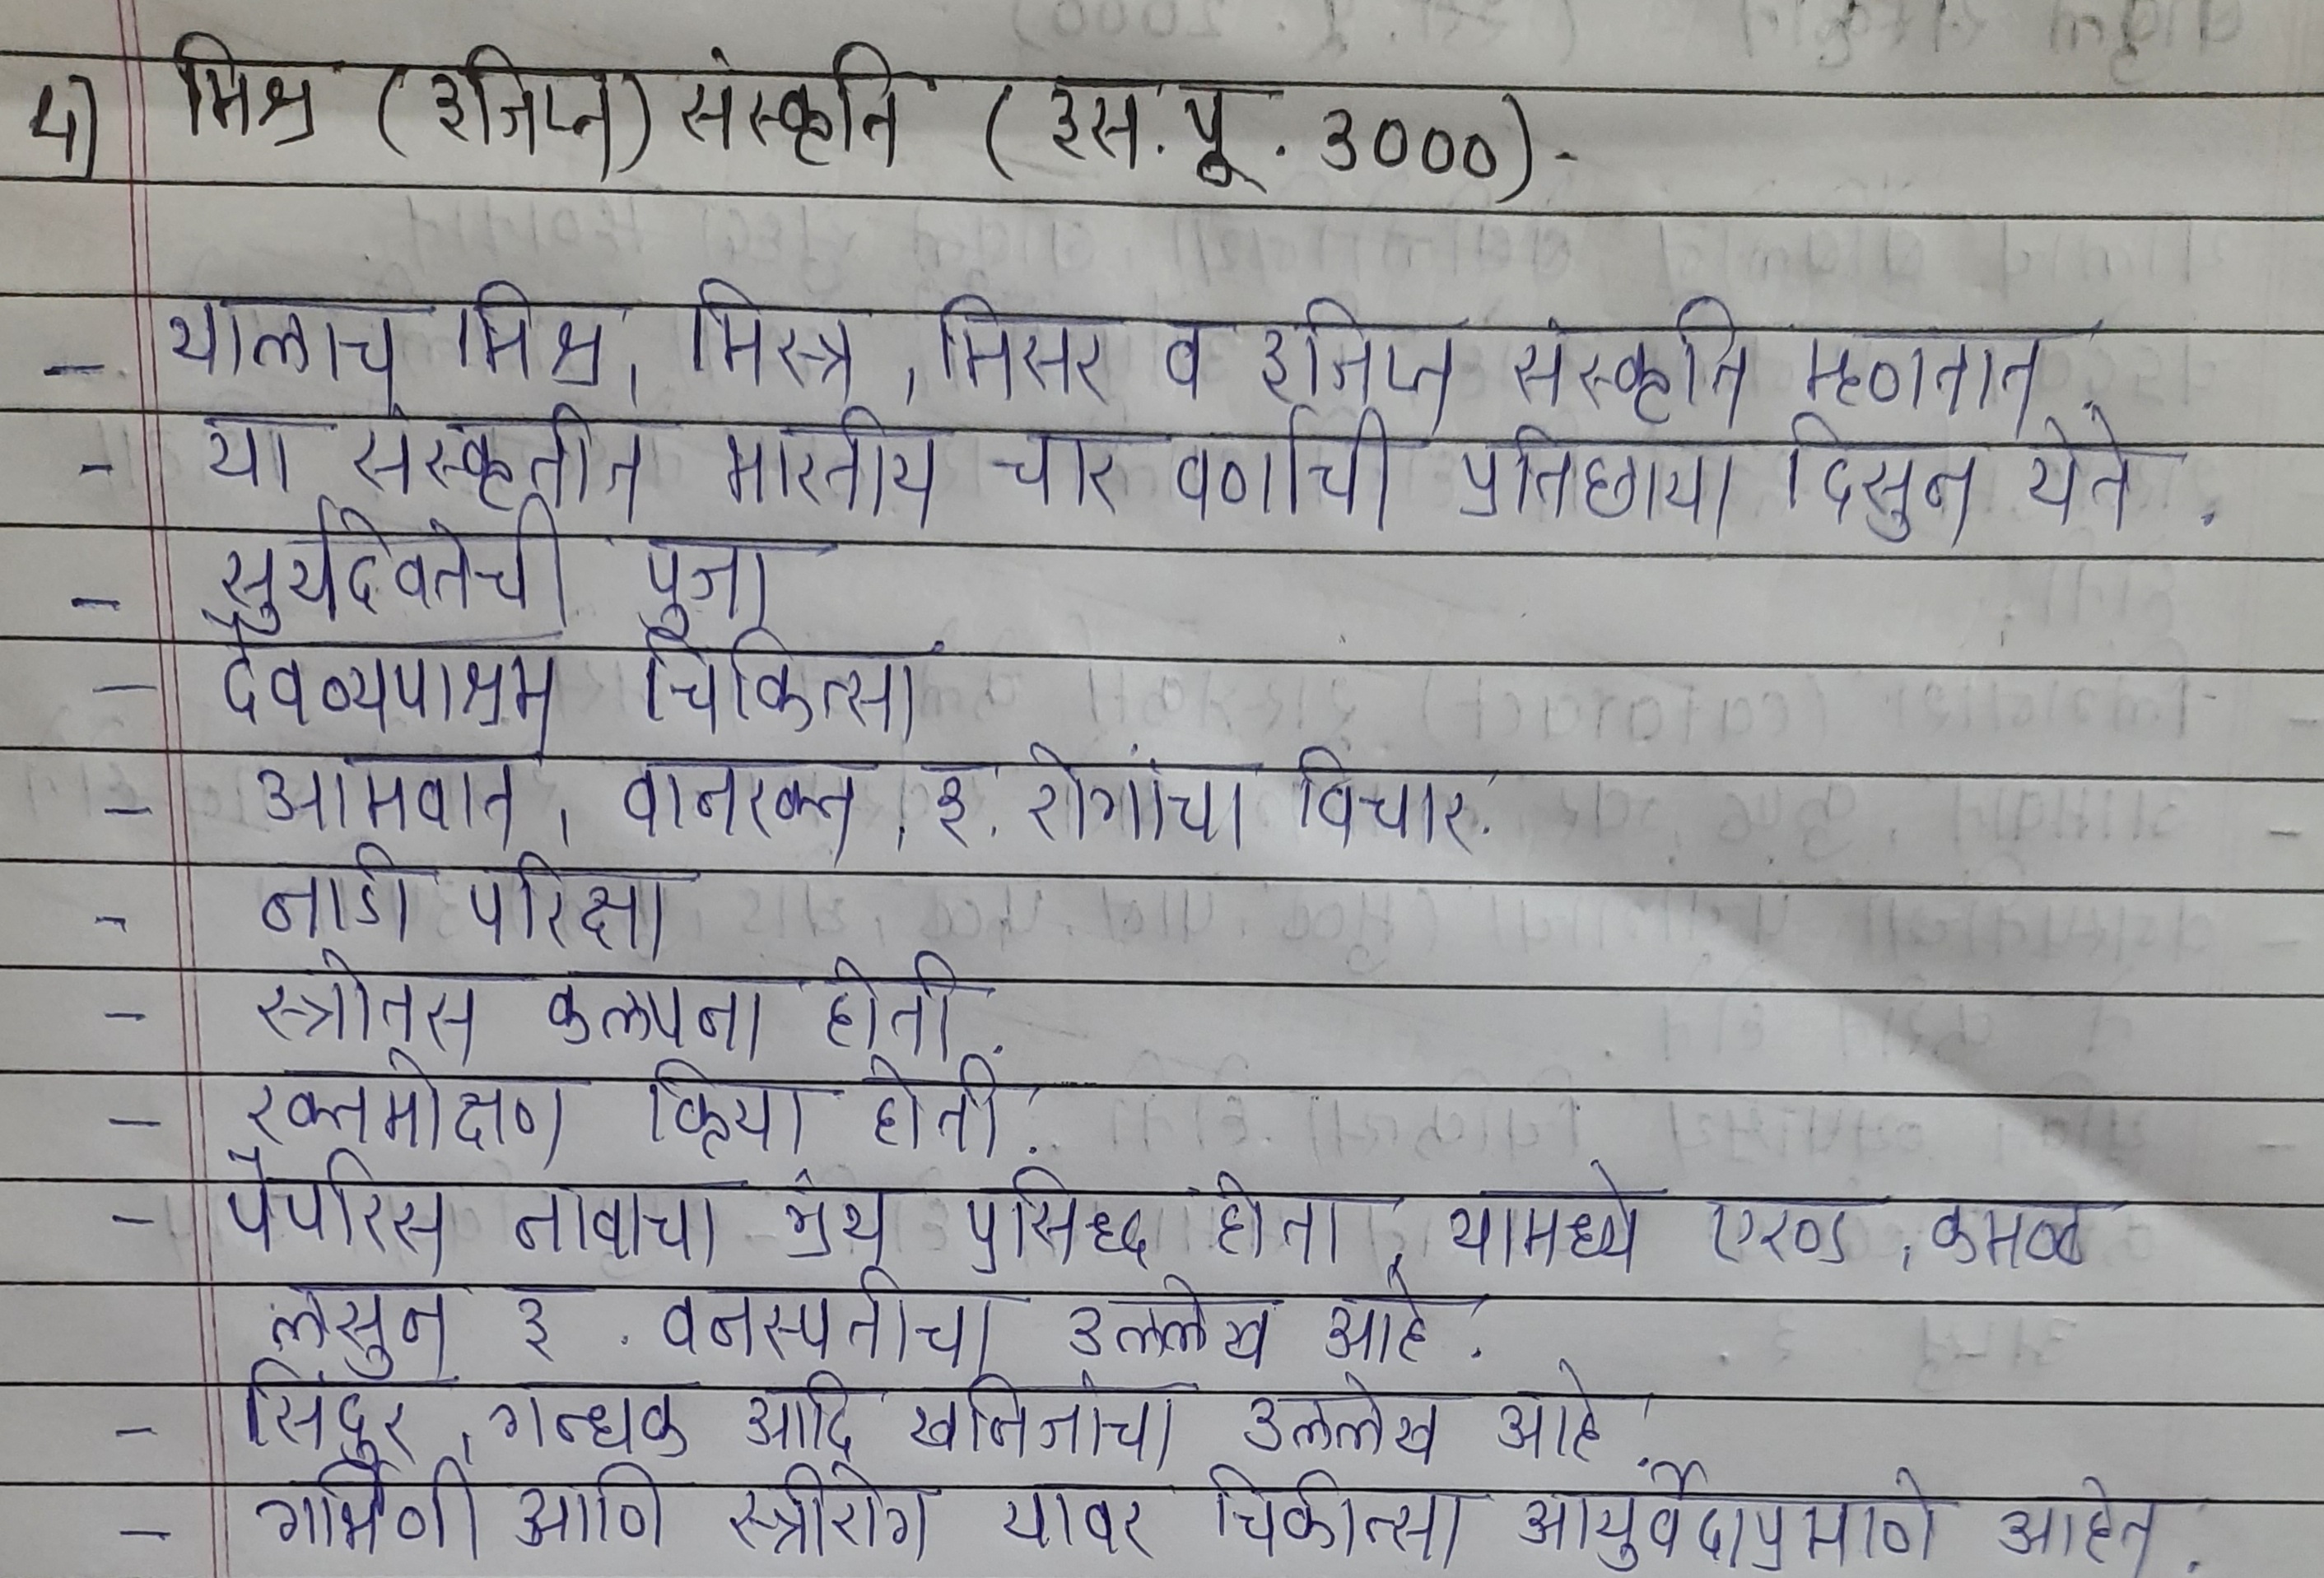 4) मिश्र (इजिप्त) संस्कृति (इस.पू. 3000)-
- यालाच मिश्र, मिस्त्र, मिसर व इजिप्त संस्कृति म्हणतात.
- या संस्कृतीत भारतीय चार वर्णाची प्रतिछाया दिसुन येते.
- सुर्यदेवतेची पुजा
- दैवव्यपाश्रम चिकित्सा
- आमवात, वातरक्त, इ. रोगांचा विचार.
- नाडी परिक्षा
- स्त्रोतस कल्पना होती.
- रक्तमोक्षण क्रिया होती.
- पॅपरिस नावाचा ग्रंथ प्रसिध्द होता, यामध्ये एरण्ड, कमळ
लसुन इ. वनस्पतीचा उल्लेख आहे.
- सिंदुर, गन्धक आदि खनिजांचा उल्लेख आहे.
- गर्भिणी आणि स्त्रीरोग यावर चिकीत्सा आयुर्वेदाप्रमाणे आहेत.